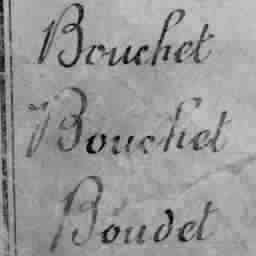 Bouchet
Bouchet
Boudet